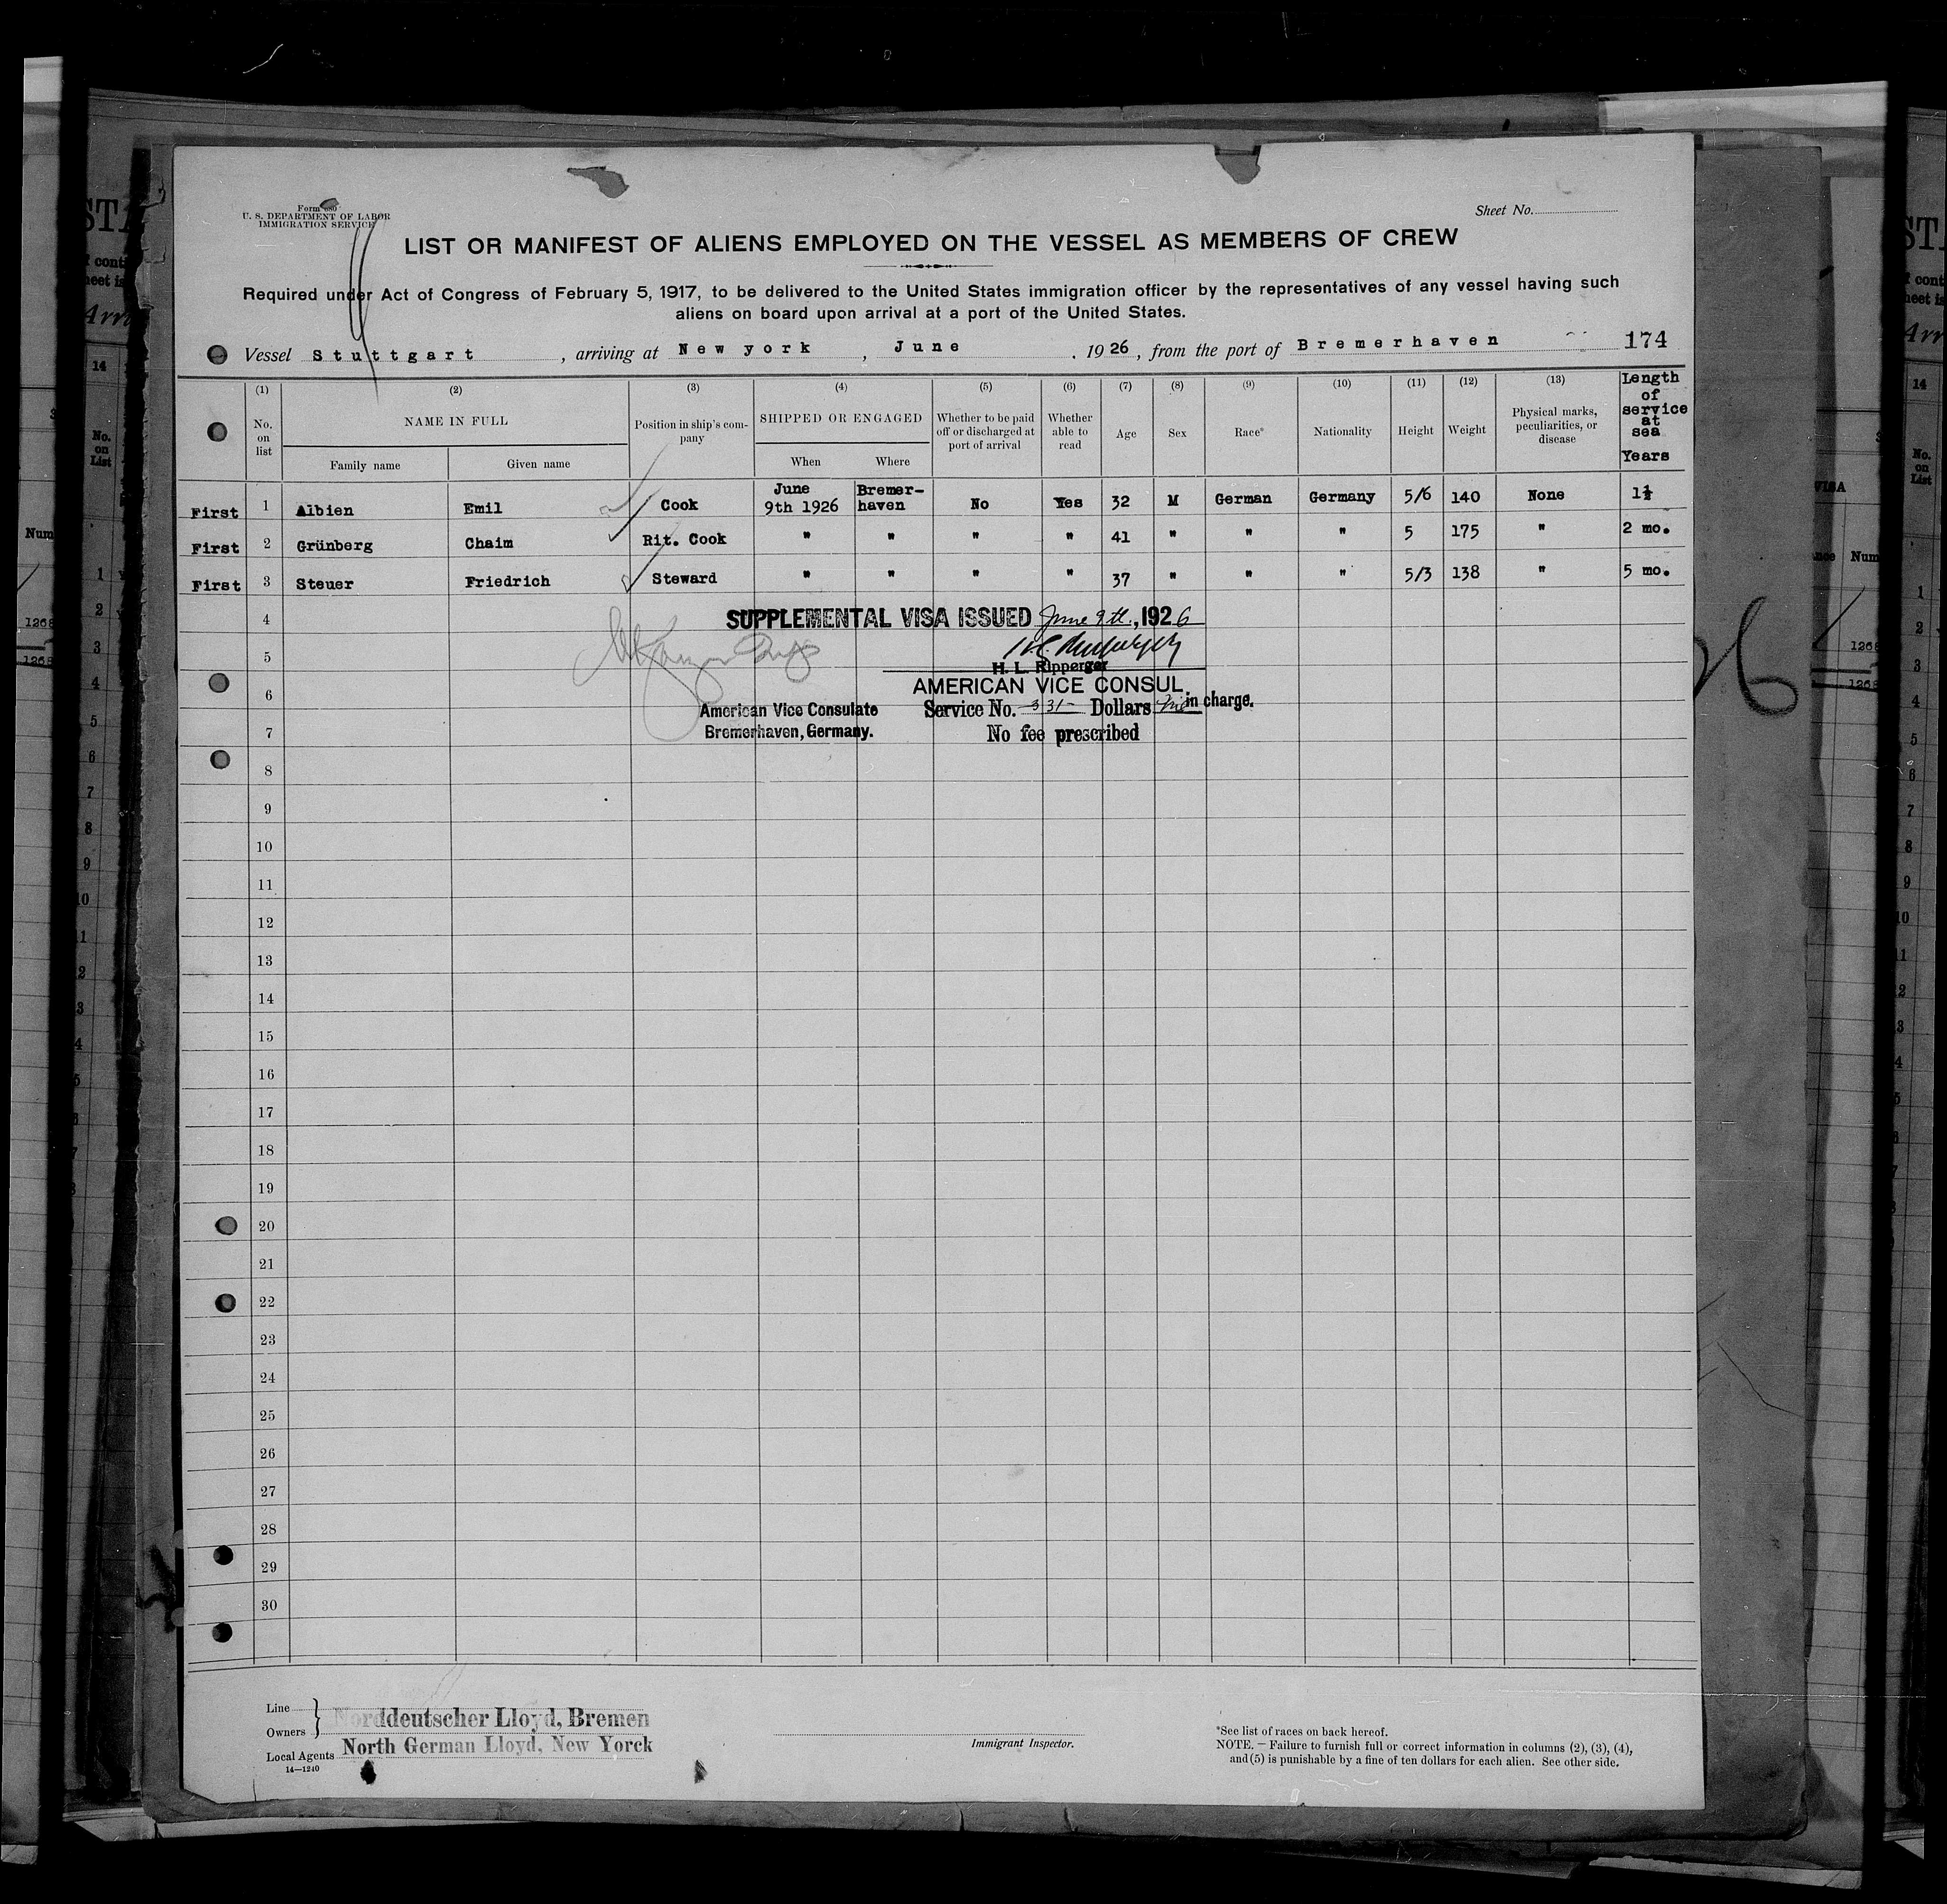 Form 680
U. S. DEPARTMENT OF LABOR
IMMIGRATION SERVICE
Sheet No.
LIST OR MANIFEST OF ALIENS EMPLOYED ON THE VESSEL AS MEMBERS OF CREW
Required under Act of Congress of February 5, 1917, to be delivered to the United States immigration officer by the representatives of any vessel having such
aliens on board upon arrival at a port of the United States.
Vessel Stuttgart, arriving at New york, June, 1926, from the port of Bremerhaven 174
(1) (2) (3) (4) (5) (6) (7) (8) (9) (10) (11) (12) (13) Length of service at sea Years
No. on list NAME IN FULL Position in ship's company SHIPPED OR ENGAGED Whether to be paid off or discharged at port of arrival Whether able to read Age Sex Race* Nationality Height Weight Physical marks, peculiarities, or disease
Family name Given name When Where
First 1 Albien Emil Cook June 9th 1926 Bremer-haven No Yes 32 M German Germany 5/6 140 None 1½
First 2 Grünberg Chaim Rit. Cook " " " " 41 " " " 5 175 " 2 mo.
First 3 Steuer Friedrich Steward " " " " 37 " " " 5/3 138 " 5 mo.
4
SUPPLEMENTAL VISA ISSUED June 9th, 1926
5
H. L. Ripperger
6
AMERICAN VICE CONSUL.
American Vice Consulate Service No. 331- Dollars in charge.
7
Bremerhaven, Germany. No fee prescribed
8
9
10
11
12
13
14
15
16
17
18
19
20
21
22
23
24
25
26
27
28
29
30
Line
Owners
Norddeutscher Lloyd, Bremen
Local Agents North German Lloyd, New Yorck
14—1240
Immigrant Inspector.
*See list of races on back hereof.
NOTE. — Failure to furnish full or correct information in columns (2), (3), (4),
and (5) is punishable by a fine of ten dollars for each alien. See other side.